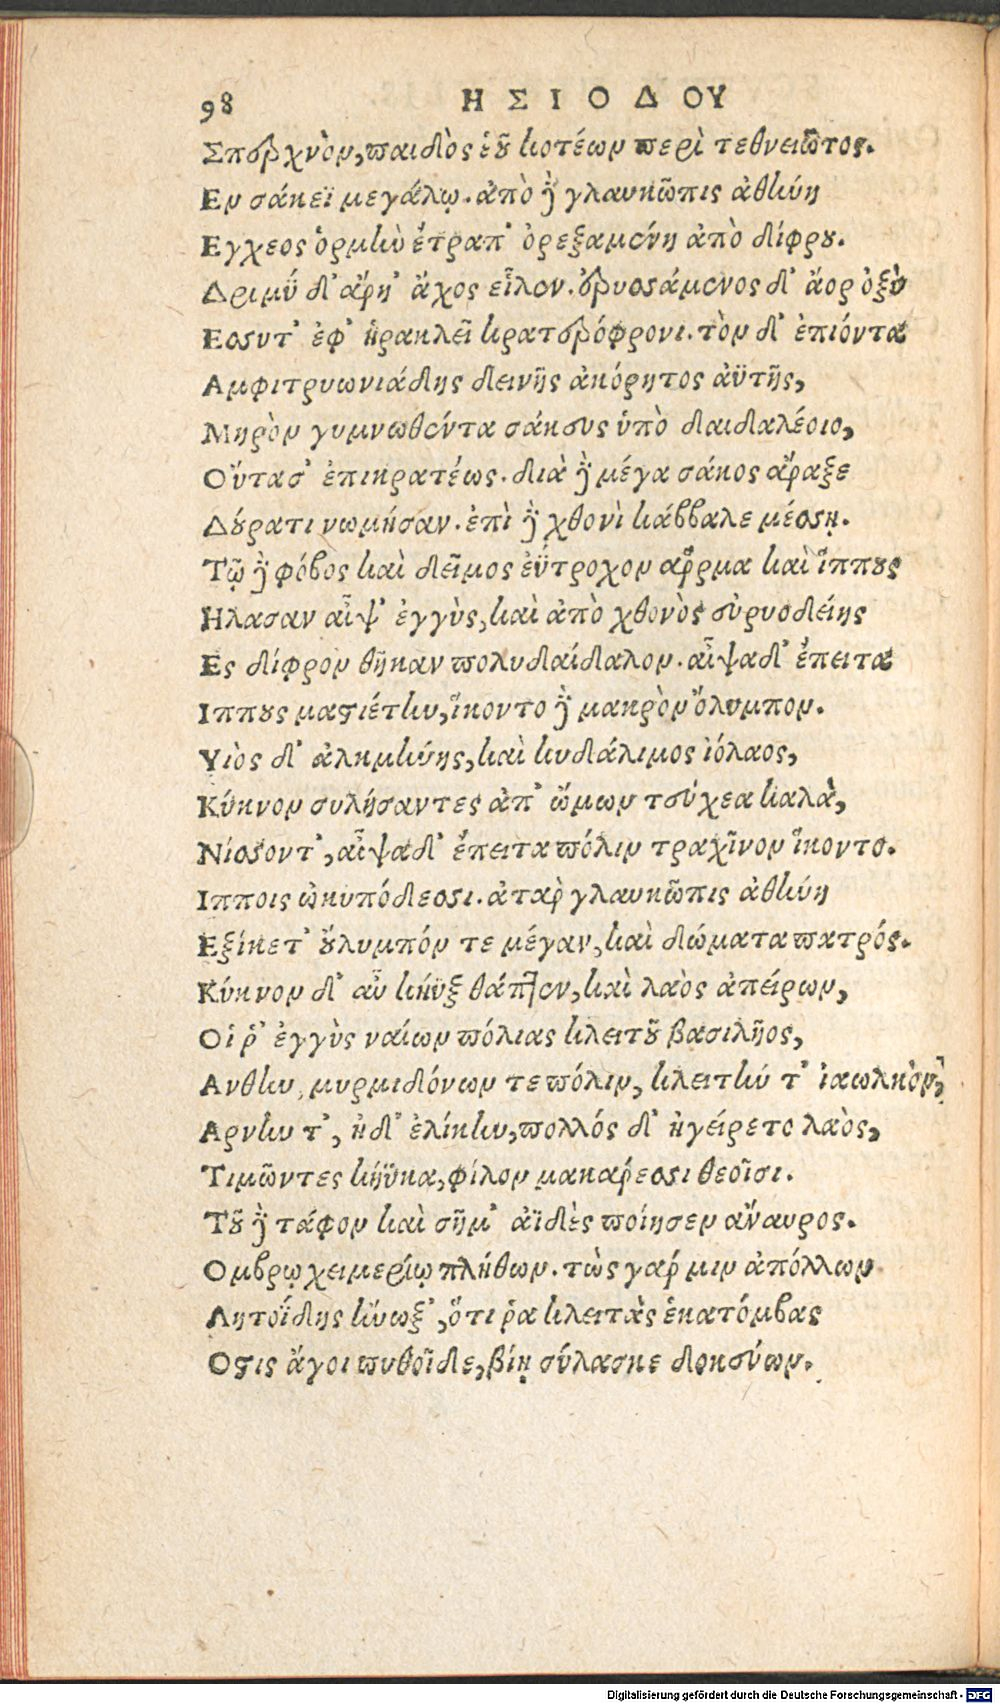 98 ΗΣΙΟΔΟΥ
Σπερχνὸν, παιδὸς ἑοῦ κοτέων περὶ τεθνειῶτος.
Εν σάκεϊ μεγάλῳ. ἀπὸ δὲ γλαυκῶπις ἀθήνη
Εγχεος ὁρμὴν ἔτραπ' ὀρεξαμένη ἀπὸ δίφρου.
Δριμὺ δ' ἄρη' ἄχος εἷλεν. ἐρυσσάμενος δ' ἄορ ὀξὺ
Εσσυτ' ἐφ' ἡρακλεῖ κρατερόφρονι. τὸν δ' ἐπιόντα
Αμφιτρυωνιάδης δεινῆς ἀκόρητος ἀϋτῆς,
Μηρὸν γυμνωθέντα σάκευς ὑπὸ δαιδαλέοιο,
Οὔτασ' ἐπικρατέως. διὰ δὲ μέγα σάκος ἄραξε
Δούρατι νωμήσαν. ἐπὶ δὲ χθονὶ κάββαλε μέσσῃ.
Τῷ δὲ φόβος καὶ δεῖμος ἐΰτροχον ἅρμα καὶ ἵππους
Ηλασαν αἶψ' ἐγγὺς, καὶ ἀπὸ χθονὸς εὐρυοδείης
Ες δίφρον θῆκαν πολυδαίδαλον. αἶψα δ' ἔπειτα
Ιππους μαστιέτην, ἵκοντο δὲ μακρὸν ὄλυμπον.
Υἱὸς δ' ἀλκμήνης, καὶ κυδάλιμος ἰόλαος,
Κύκνον συλήσαντες ἀπ' ὤμων τεύχεα καλὰ,
Νίσσοντ', αἶψα δ' ἔπειτα πόλιν τραχῖνον ἵκοντο.
Ιπποις ὠκυπόδεσσι. ἀτὰρ γλαυκῶπις ἀθήνη
Εξίκετ' οὔλυμπόν τε μέγαν, καὶ δώματα πατρός.
Κύκνον δ' αὖ κήϋξ θάπτεν, καὶ λαὸς ἀπείρων,
Οἱ ῥ' ἐγγὺς ναίων πόλιας κλειτοῦ βασιλῆος,
Ανθην, μυρμιδόνων τε πόλιν, κλειτήν τ' ἰαωλκὸν,
Αρνην τ', ἠδ' ἑλίκην, πολλός δ' ἠγείρετο λαὸς,
Τιμῶντες κήϋκα, φίλον μακάρεσσι θεοῖσι.
Τοῦ δὲ τάφον καὶ σῆμ' ἀϊδὲς ποίησεν ἄναυρος.
Ομβρῳ χειμερίῳ πλήθων. τὼς γάρ μιν ἀπόλλων
Λητοΐδης ἤνωξ', ὅτι ῥα κλειτὰς ἑκατόμβας
Οστις ἄγοι πυθοῖδε, βίῃ σύλασκε δοκεύων.
Digitalisierung gefördert durch die Deutsche Forschungsgemeinschaft - DFG